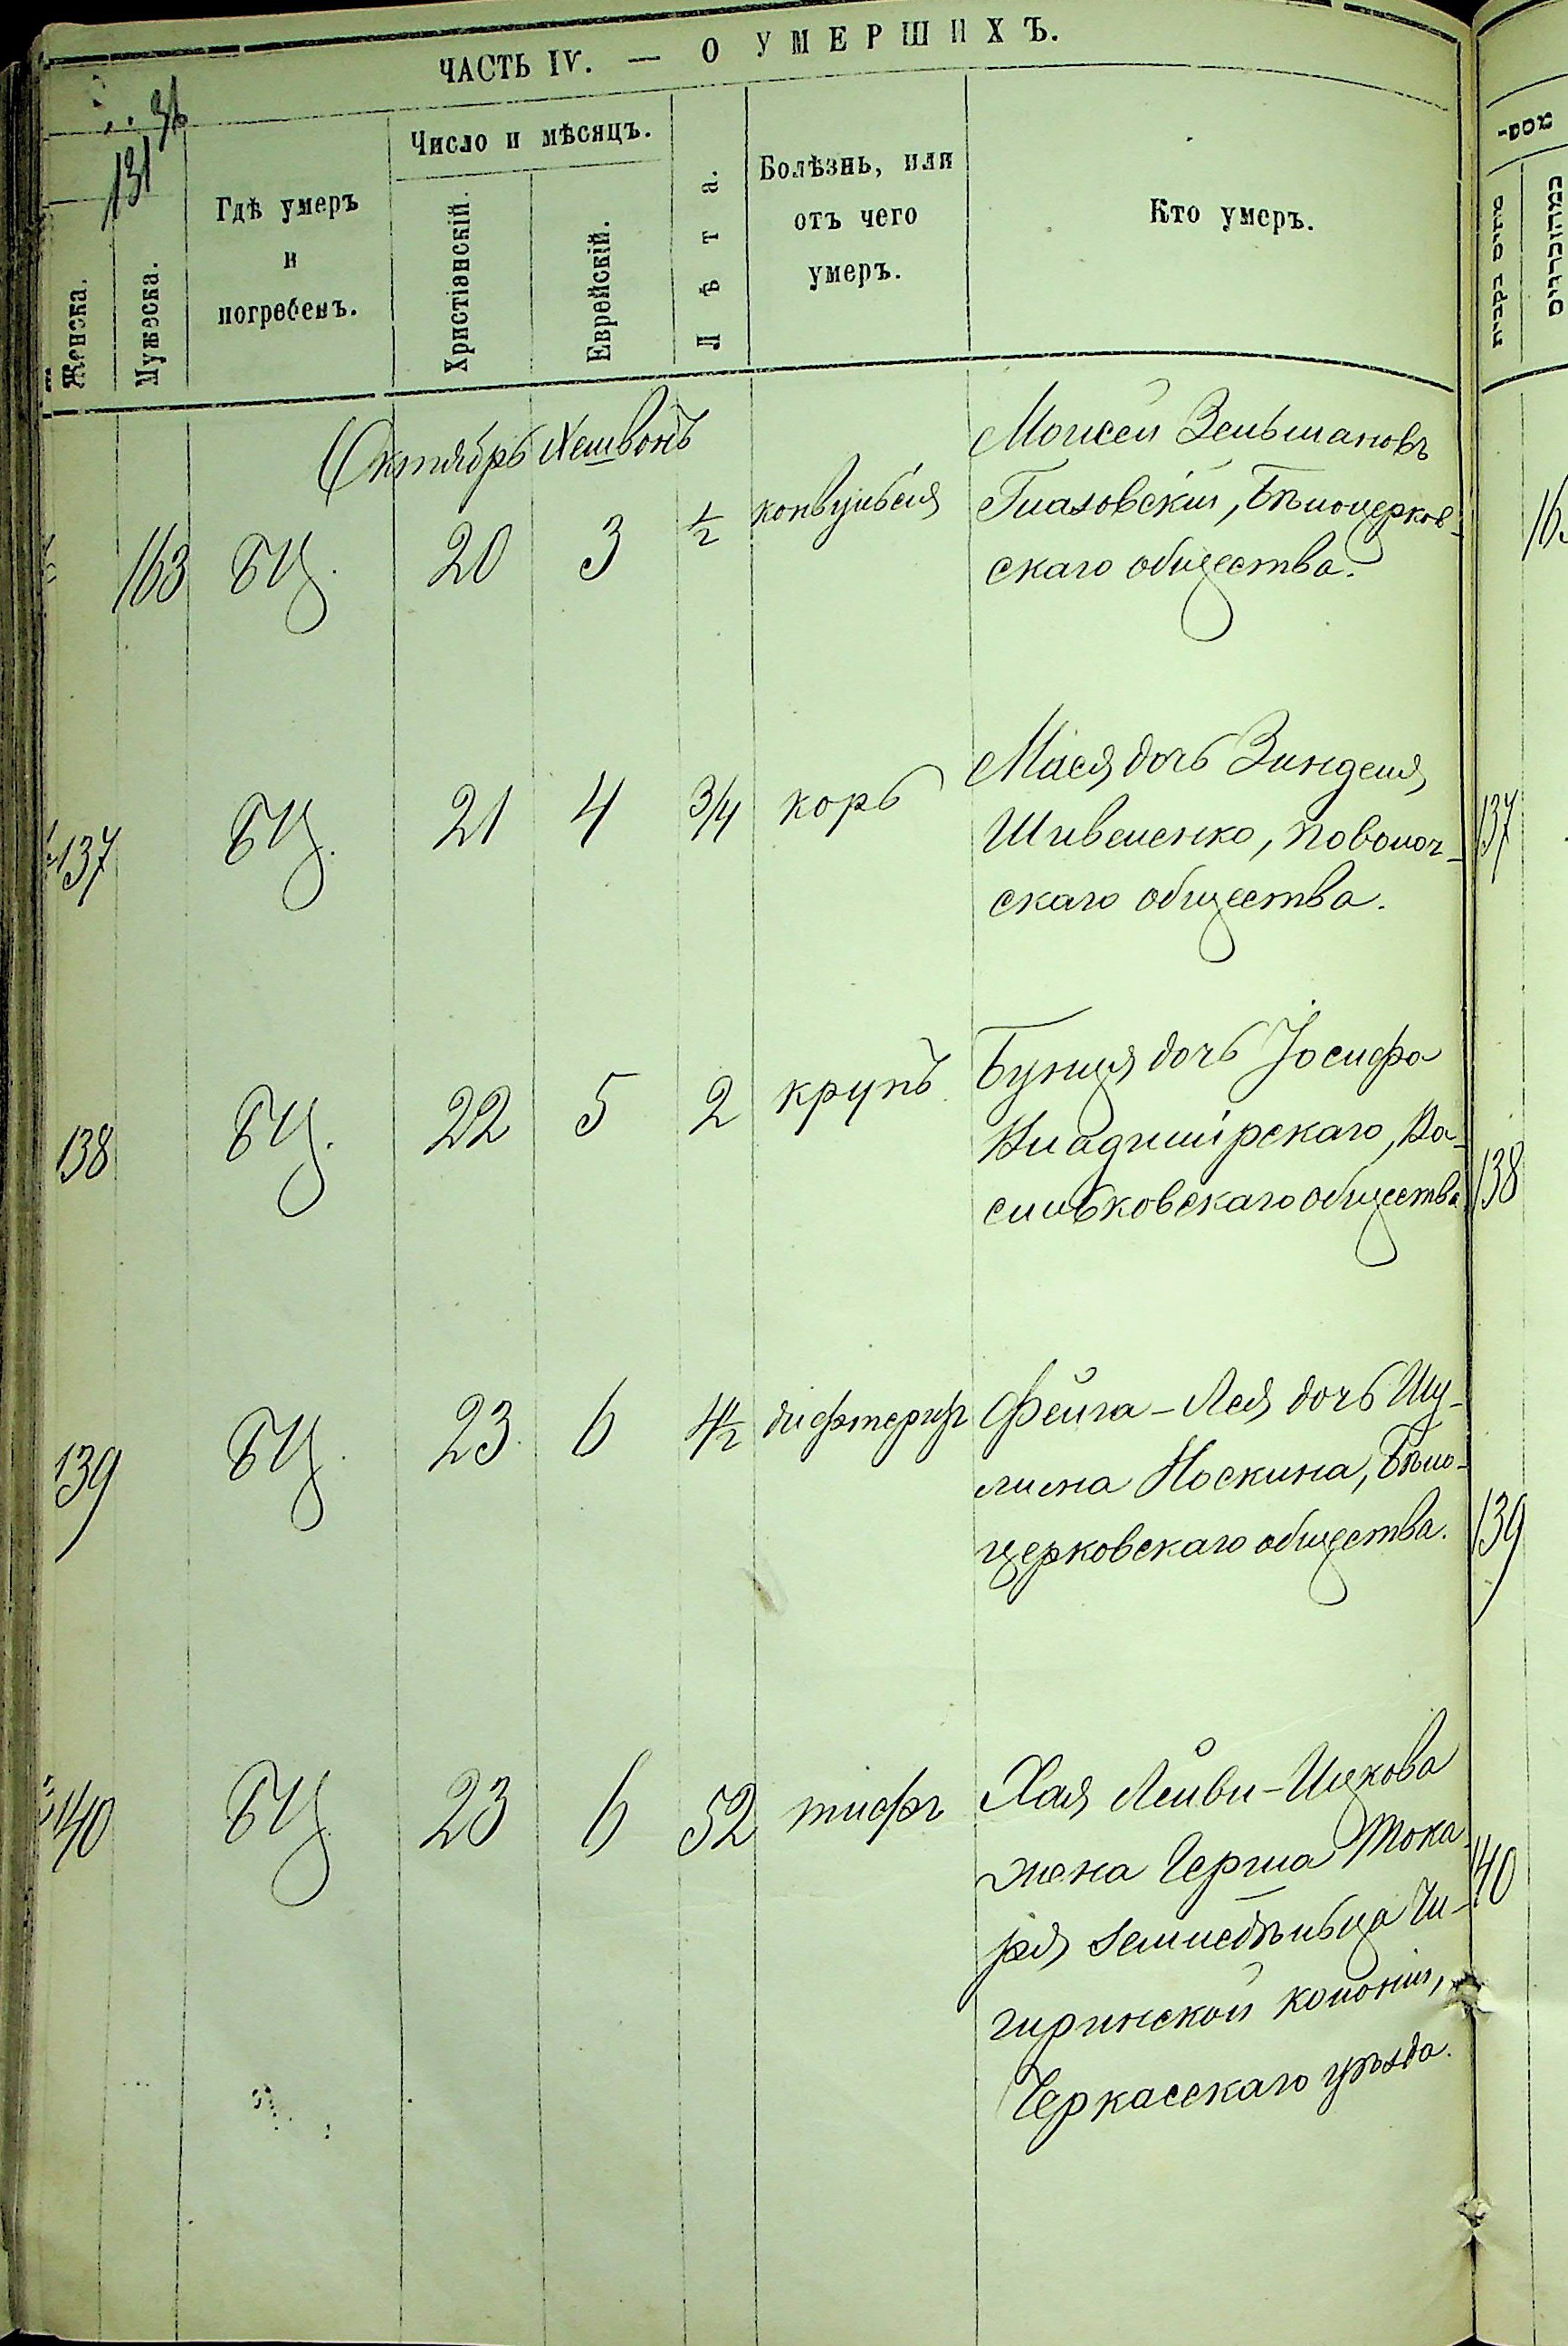 ЧАСТЬ IV. — О УМЕРШИХЪ.
131
Женска.
Мужеска.
Гдѣ умеръ
и
погребенъ.
Число и мѣсяцъ.
Христіанскій.
Еврейскій.
Лѣта.
Болѣзнь, или
отъ чего
умеръ.
Кто умеръ.
Октябрь Хешвонъ
163 БЦ. 20 3 1/2 конвульсія
Моисей Зельмановъ
Глазовскій, Бѣлоцерков-
скаго общества.
137 БЦ. 21 4 3/4 корь
Мася дочь Зинделя
Шивеленко, Паволоч-
скаго общества.
137
138 БЦ. 22 5 2 крупъ
Бунця дочь Іосифа
Владимірскаго, Ва-
сильковскаго общества
138
139 БЦ. 23 6 4 1/2 дифтеритъ
Фейга-Лея дочь Шу-
лима Носкина, Бѣло-
церковскаго общества.
139
140 БЦ. 23 6 52 тифъ
Хая Лейви-Ицкова
жена Герша Тока-
ря земледѣльца Чи-
гиринской колоніи,
Черкасскаго уѣзда.
140